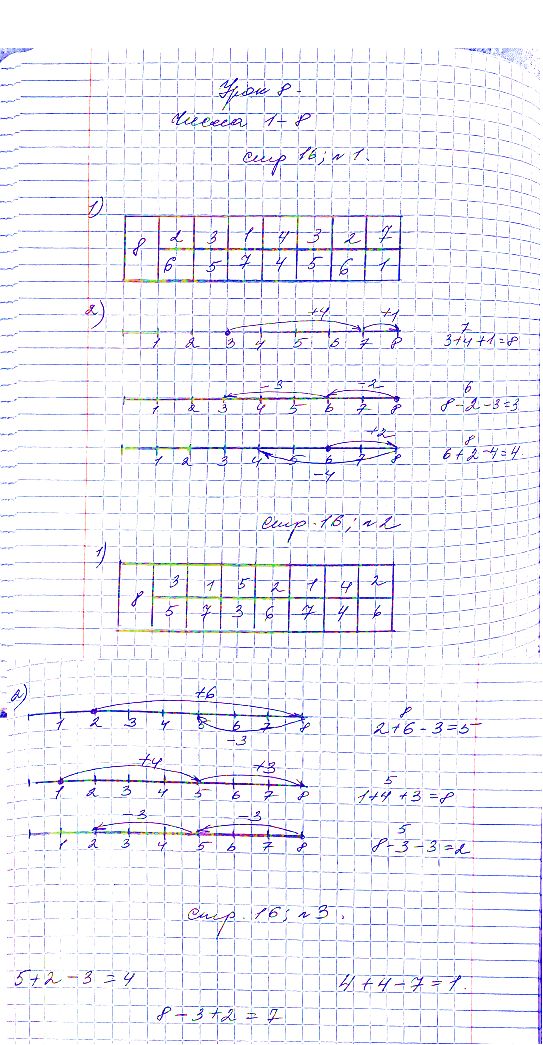 Урок 8.
Числа 1-8
стр 16; №1.
1)
8 2 3 1 4 3 2 7
6 5 7 4 5 6 1
2)
+4 +1
1 2 3 4 5 6 7 8
7
3+4+1=8
-3 -2
1 2 3 4 5 6 7 8
6
8-2-3=3
+2
1 2 3 4 5 6 7 8
-4
8
6+2-4=4
стр. 16; №2
1)
8 3 1 5 2 1 4 2
5 7 3 6 7 4 6
2)
+6
1 2 3 4 5 6 7 8
-3
8
2+6-3=5
+4 +3
1 2 3 4 5 6 7 8
5
1+4+3=8
-3 -3
1 2 3 4 5 6 7 8
5
8-3-3=2
стр. 16; №3.
5+2-3=4 4+4-7=1.
8-3+2=7